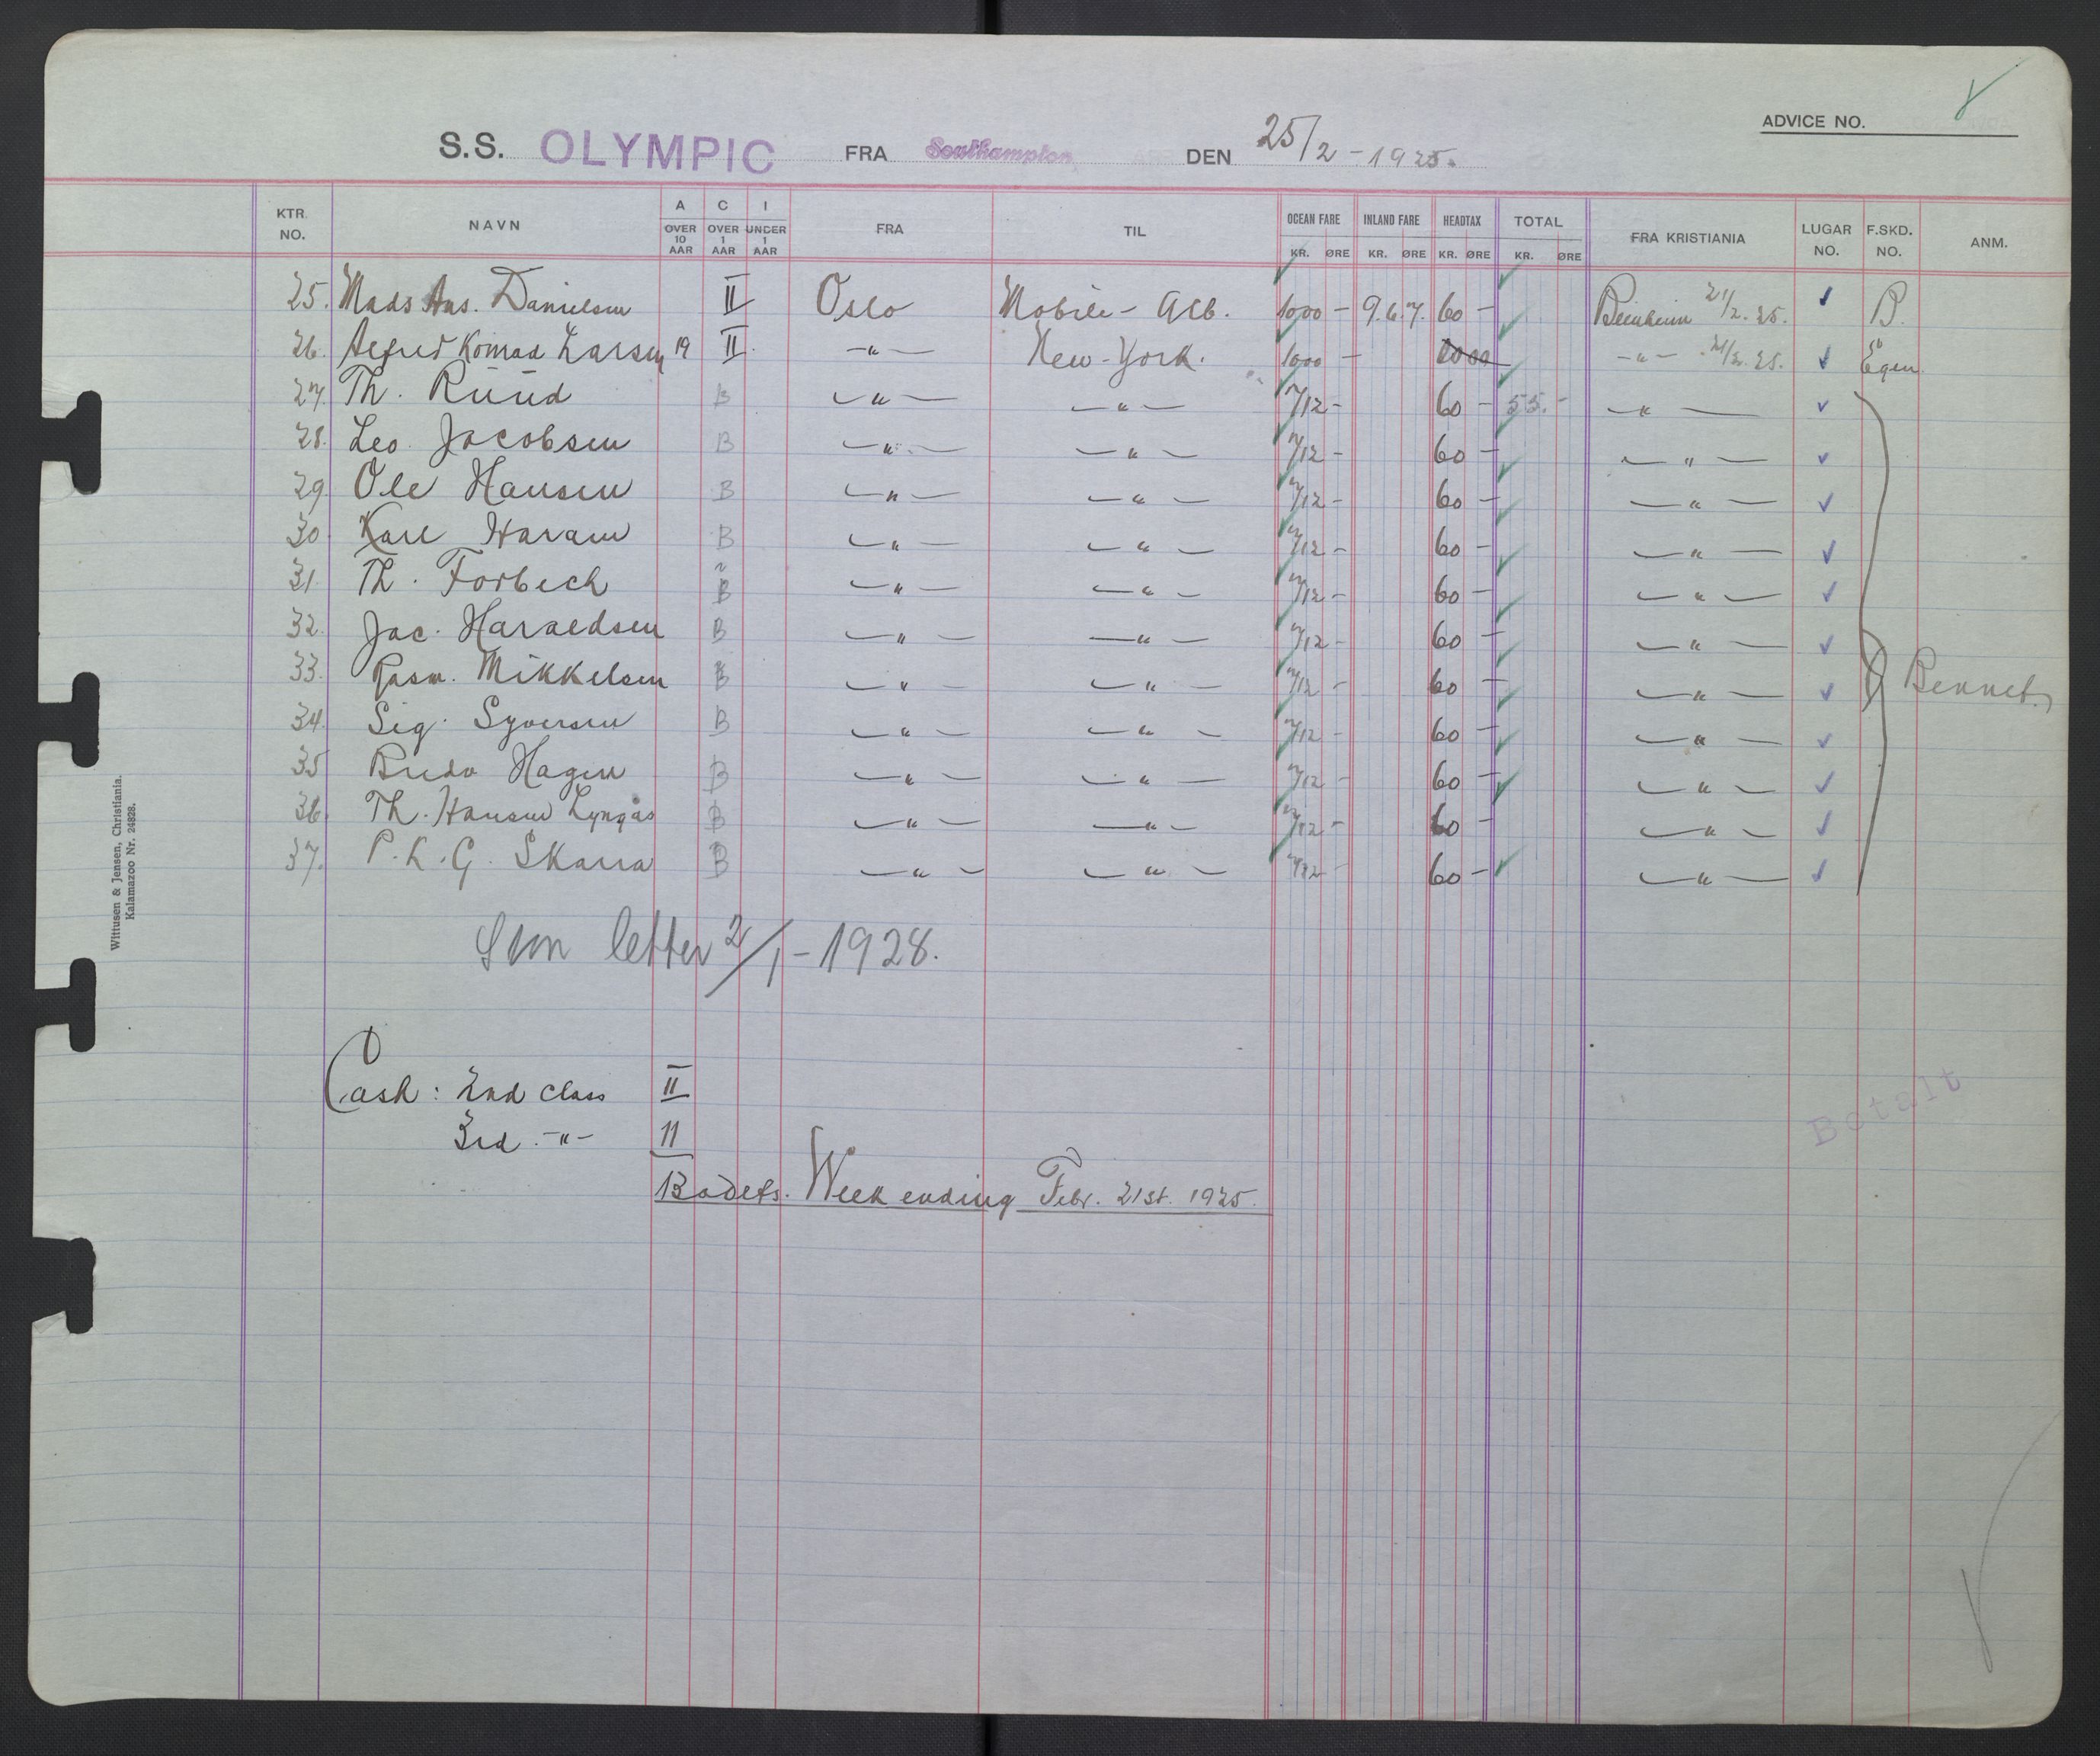 ADVICE NO.
S.S. OLYMPIC FRA Southampton DEN 25/2-1925.
KTR. NO. NAVN A OVER 10 AAR C OVER 1 AAR I UNDER 1 AAR FRA TIL OCEAN FARE KR. ØRE INLAND FARE KR. ØRE HEADTAX KR. ØRE TOTAL KR. ØRE FRA KRISTIANIA LUGAR NO. F.SKD. NO. ANM.
25. Mads Ans. Danielsen II Oslo Mobile - Alb. 1000 - 9.6.7. 60 - 21/2.25. ✓ B.
26. Alfred Konrad Larsen 19 II. -"- New-York. 1000 - -"- 21/2.25. ✓ Egen
27. Th. Ruud B -"- -"- 712 - 60 - 55.- -"- ✓
28. Leo Jacobsen B -"- -"- 712 - 60 - -"- ✓
29. Ole Hansen B -"- -"- 712 - 60 - -"- ✓
30 Karl Haram B -"- -"- 712 - 60 - -"- ✓
31. Th. Forbech B -"- -"- 712 - 60 - -"- ✓
32. Jac. Haraldsen B -"- -"- 712 - 60 - -"- ✓
33. Rasm. Mikkelsen B -"- -"- 712 - 60 - -"- ✓ Bennet
34. Sig. Syversen B -"- -"- 712 - 60 - -"- ✓
35 Bredo Hagen B -"- -"- 712 - 60 - -"- ✓
36. Th. Hansen Lyngås B -"- -"- 712 - 60 - -"- ✓
37. P.K.G. Skarra B -"- -"- 712 - 60 - -"- ✓
letter 2/1-1928.
Cash: 2nd class II
3rd -"- 11
Week ending Febr. 21st. 1925.
Betalt
Wittusen & Jensen, Christiania.
Kalamazoo Nr. 24828.